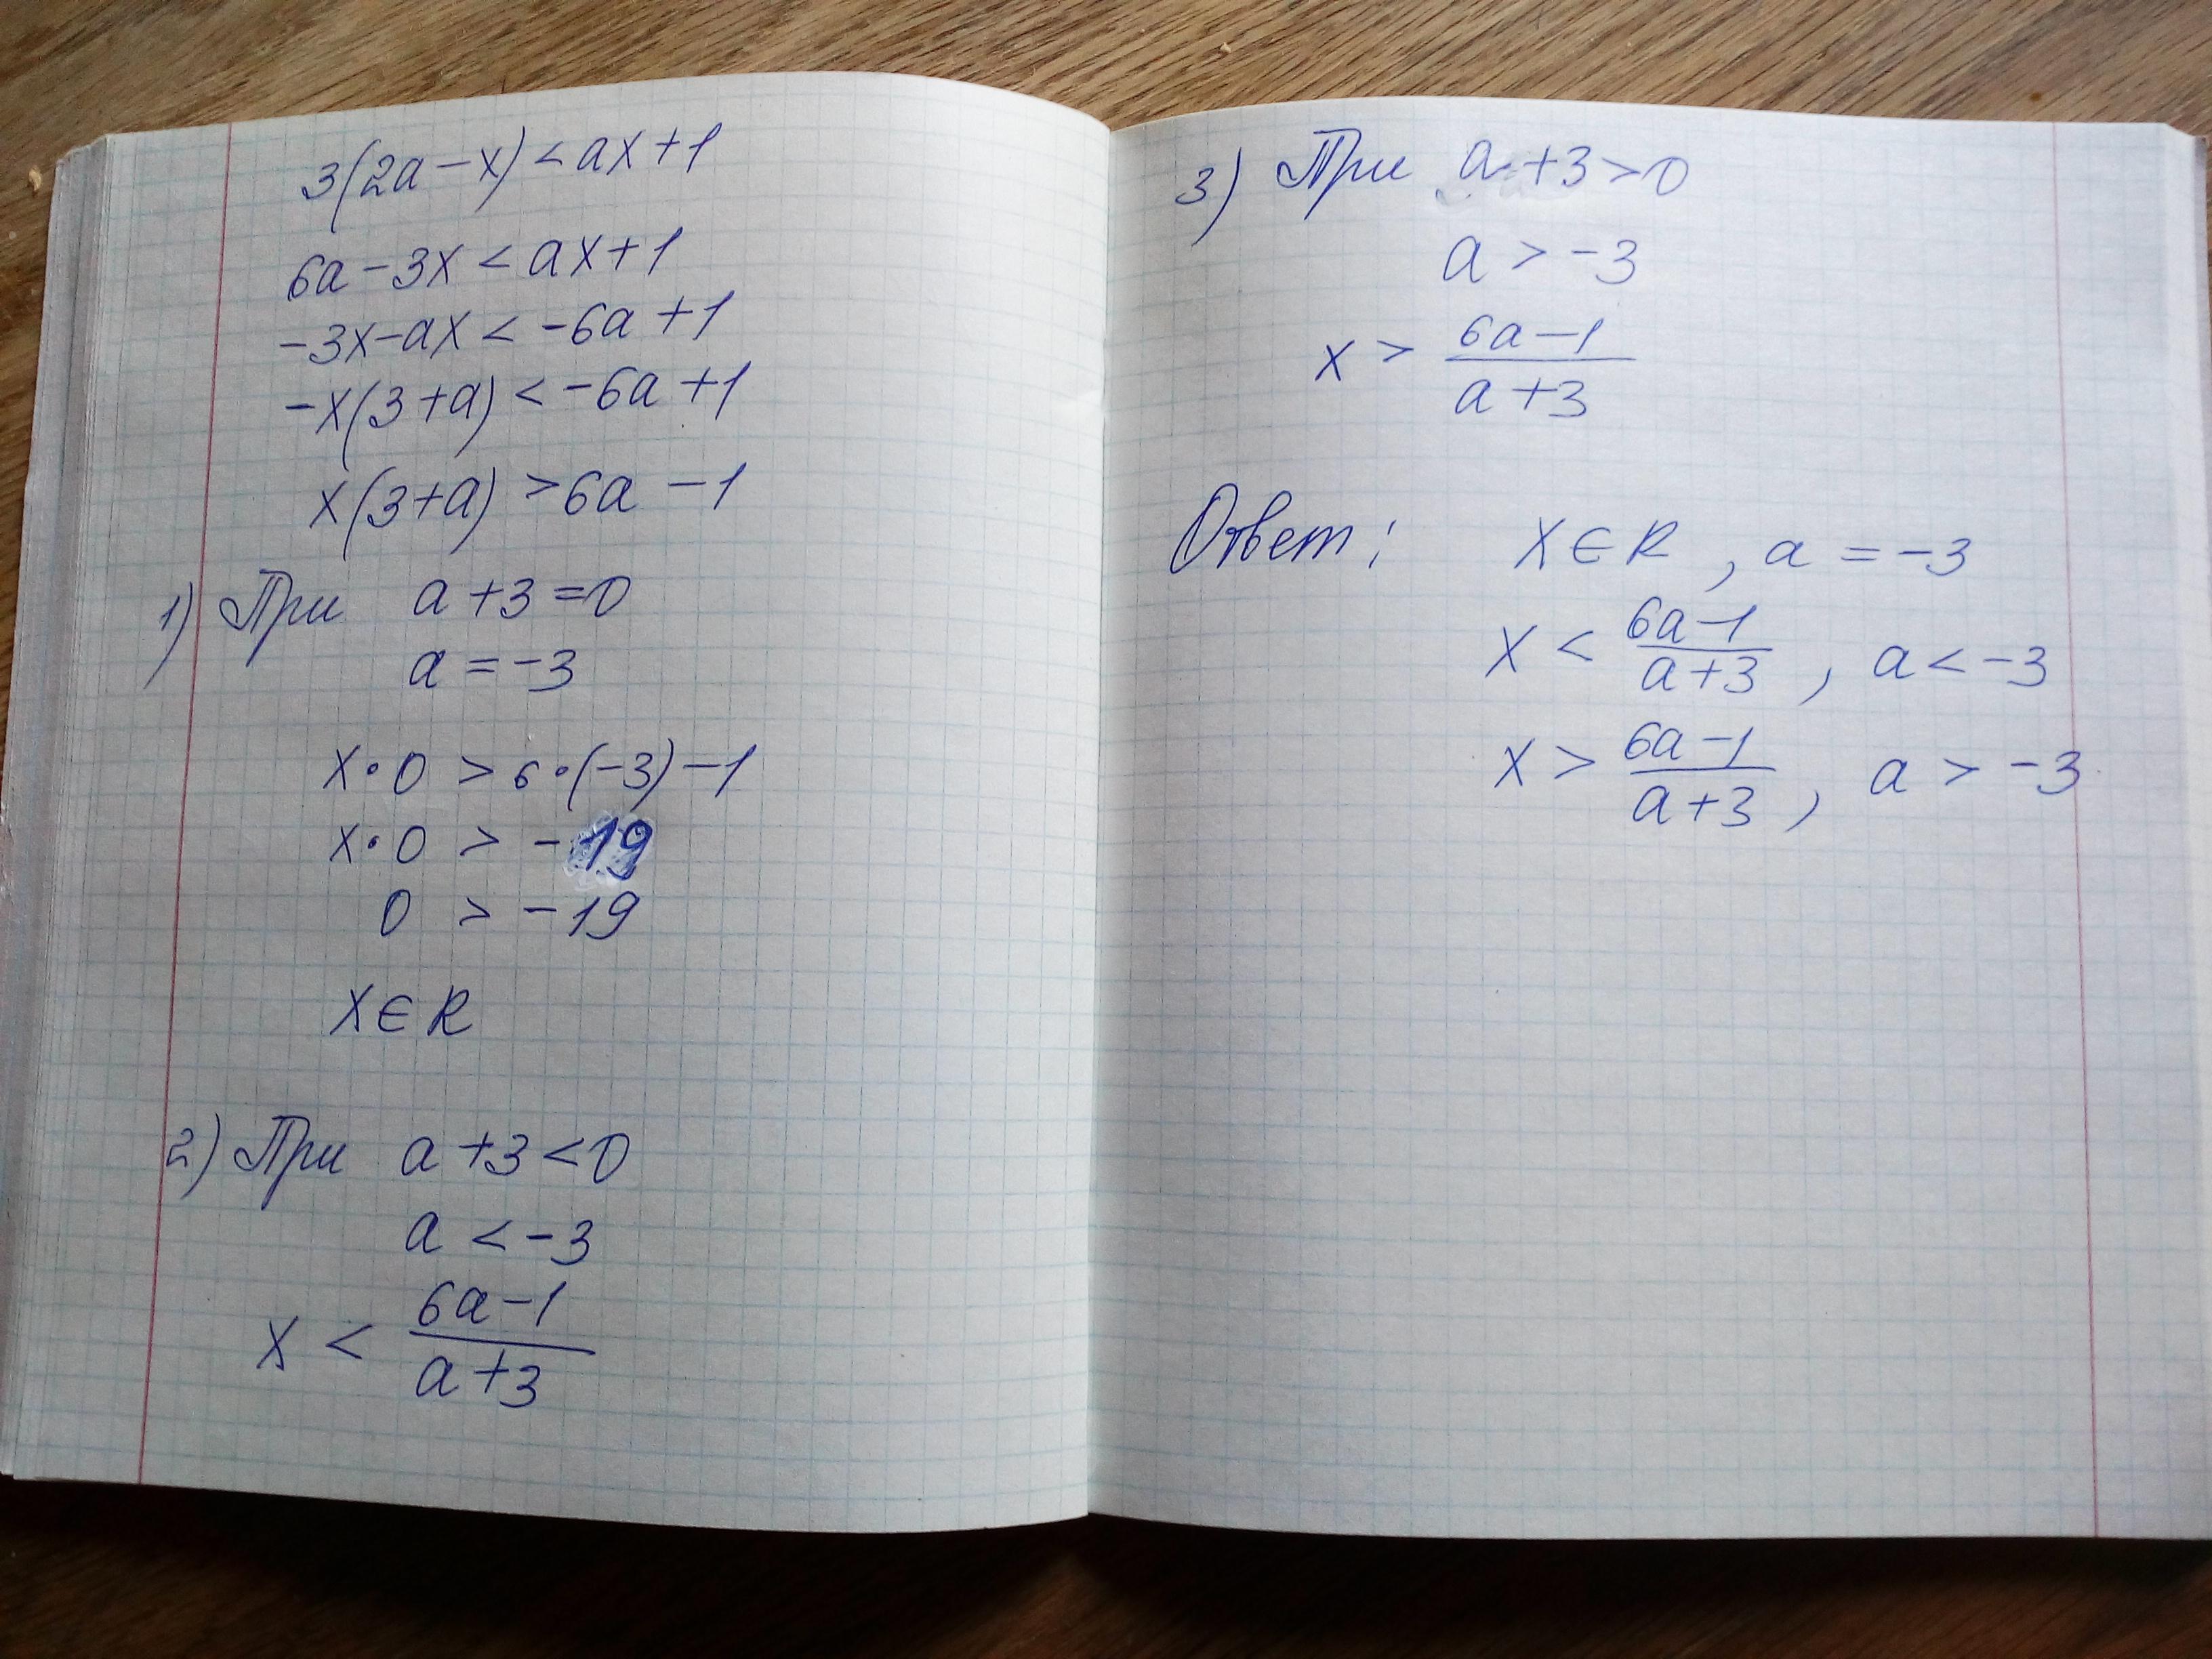 3(2a-x)<ax+1
6a-3x<ax+1
-3x-ax<-6a+1
-x(3+a)<-6a+1
x(3+a)>6a-1
1) При a+3=0
a=-3
x•0>6•(-3)-1
x•0>-19
0>-19
x∈R
2) При a+3<0
a<-3
x< (6a-1)/(a+3)
3) При a+3>0
a>-3
x> (6a-1)/(a+3)
Ответ: x∈R, a=-3
x< (6a-1)/(a+3), a<-3
x> (6a-1)/(a+3), a>-3